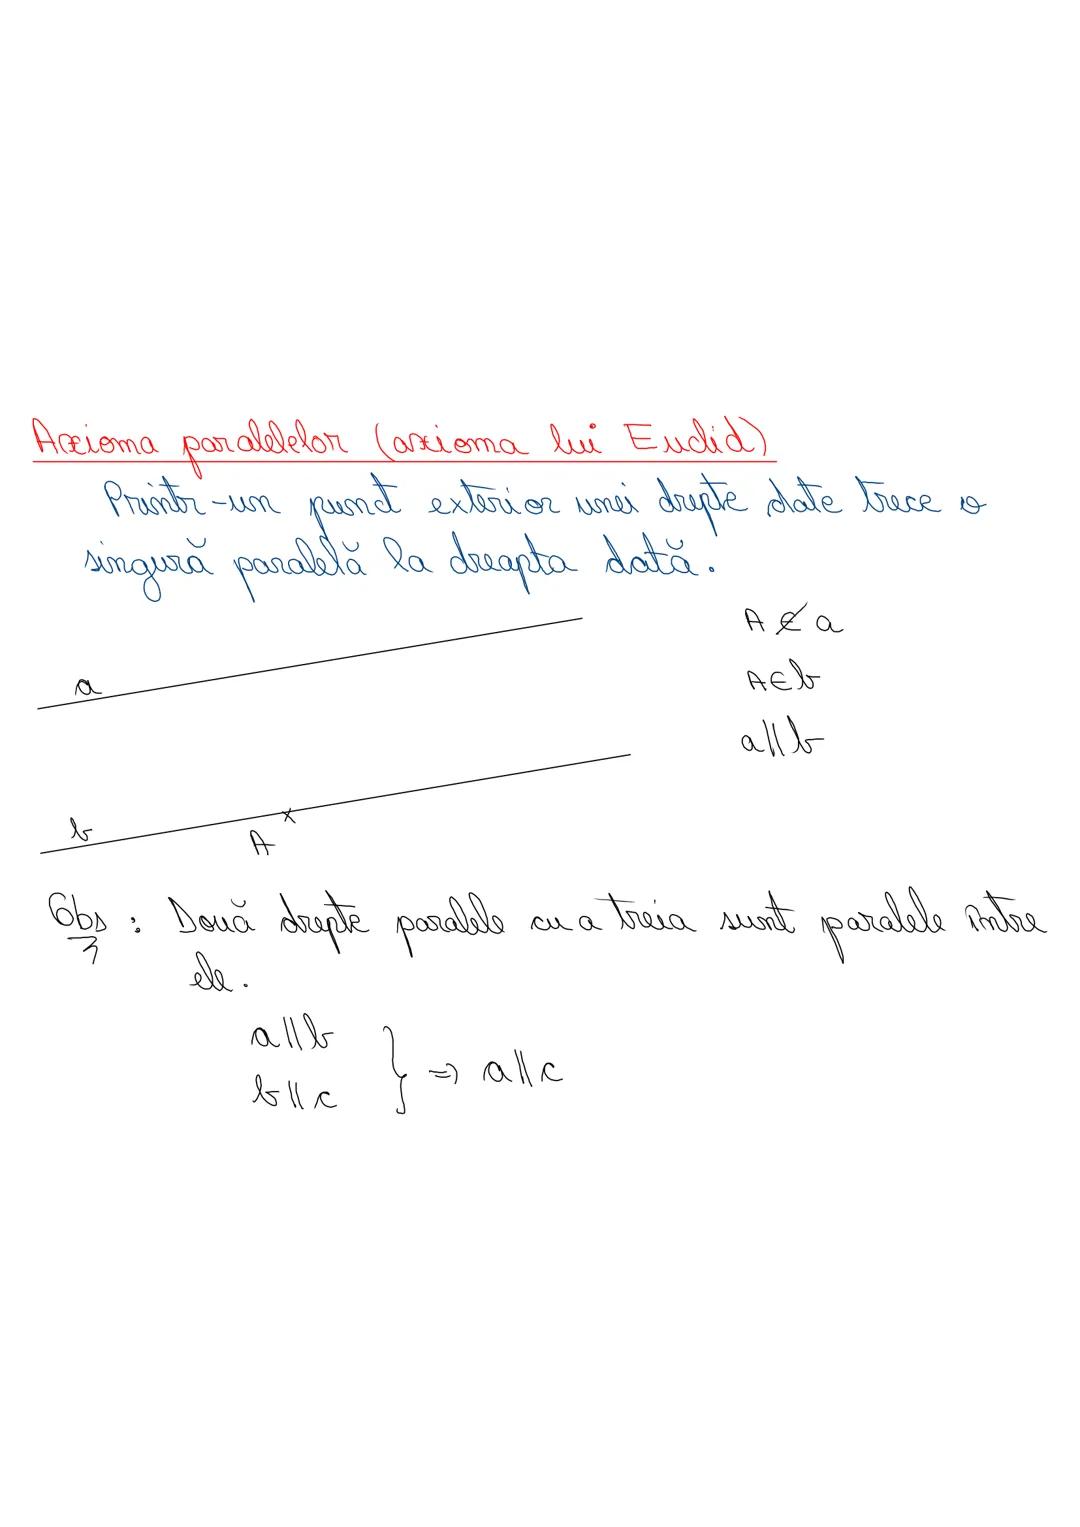 Axioma paralelelor (axioma lui Euclid)
Printr-un punct exterior unei drepte date trece o
singură paralelă la dreapta dată.
A ∉ a
a
A ∈ b
a || b
b
A
Obs : Două drepte paralele cu a treia sunt paralele între
ele.
a || b
} => a || c
b || c